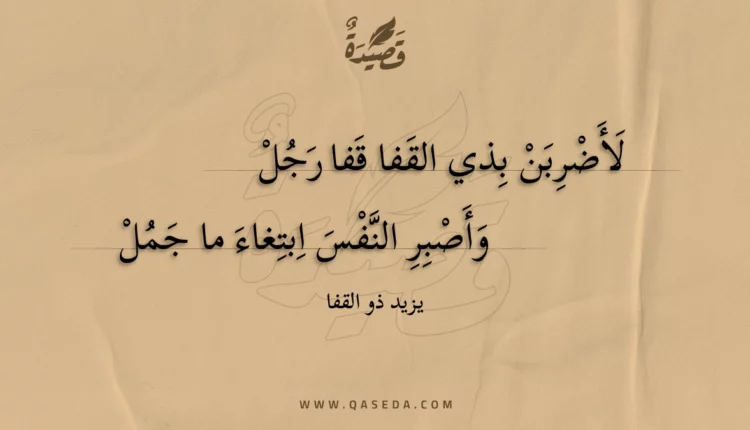 قَصِيدَةٌ
لَأَضْرِبَنْ بِذي القَفا قَفا رَجُلْ
وَأَصْبِرِ النَّفْسَ اِبتِغاءَ ما جَمُلْ
يزيد ذو القفا
WWW.QASEDA.COM